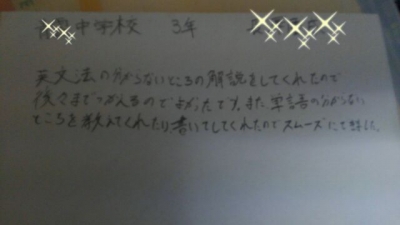 中学校 3年
英文法の分からないところの解説をしてくれたので
後々までつかえるのでよかたです。また、単語の分からない
ところを教えてくれたり書いてしてくれたのでスムーズにできました。